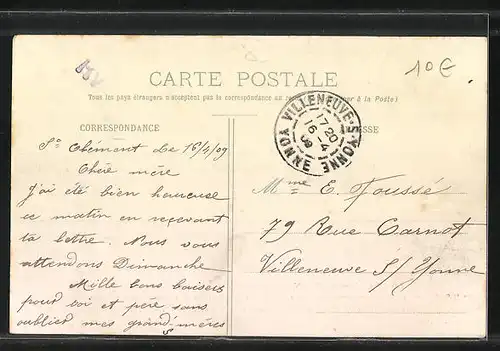 10€
CARTE POSTALE
Tous les pays étrangers n'acceptent pas la correspondance au à la Poste)
CORRESPONDANCE
VILLENEUVE-S-YONNE
17 20
16 - 4
09
YONNE
St Clément le 16/4/09
Chère mère
j'ai été bien heureuse
ce matin en recevant
ta lettre. Nous vous
attendons Dimanche
Mille bons baisers
pour toi et père sans
oublier mes grand-mères
Mme E. Foussé
79 Rue Carnot
Villeneuve S/ Yonne